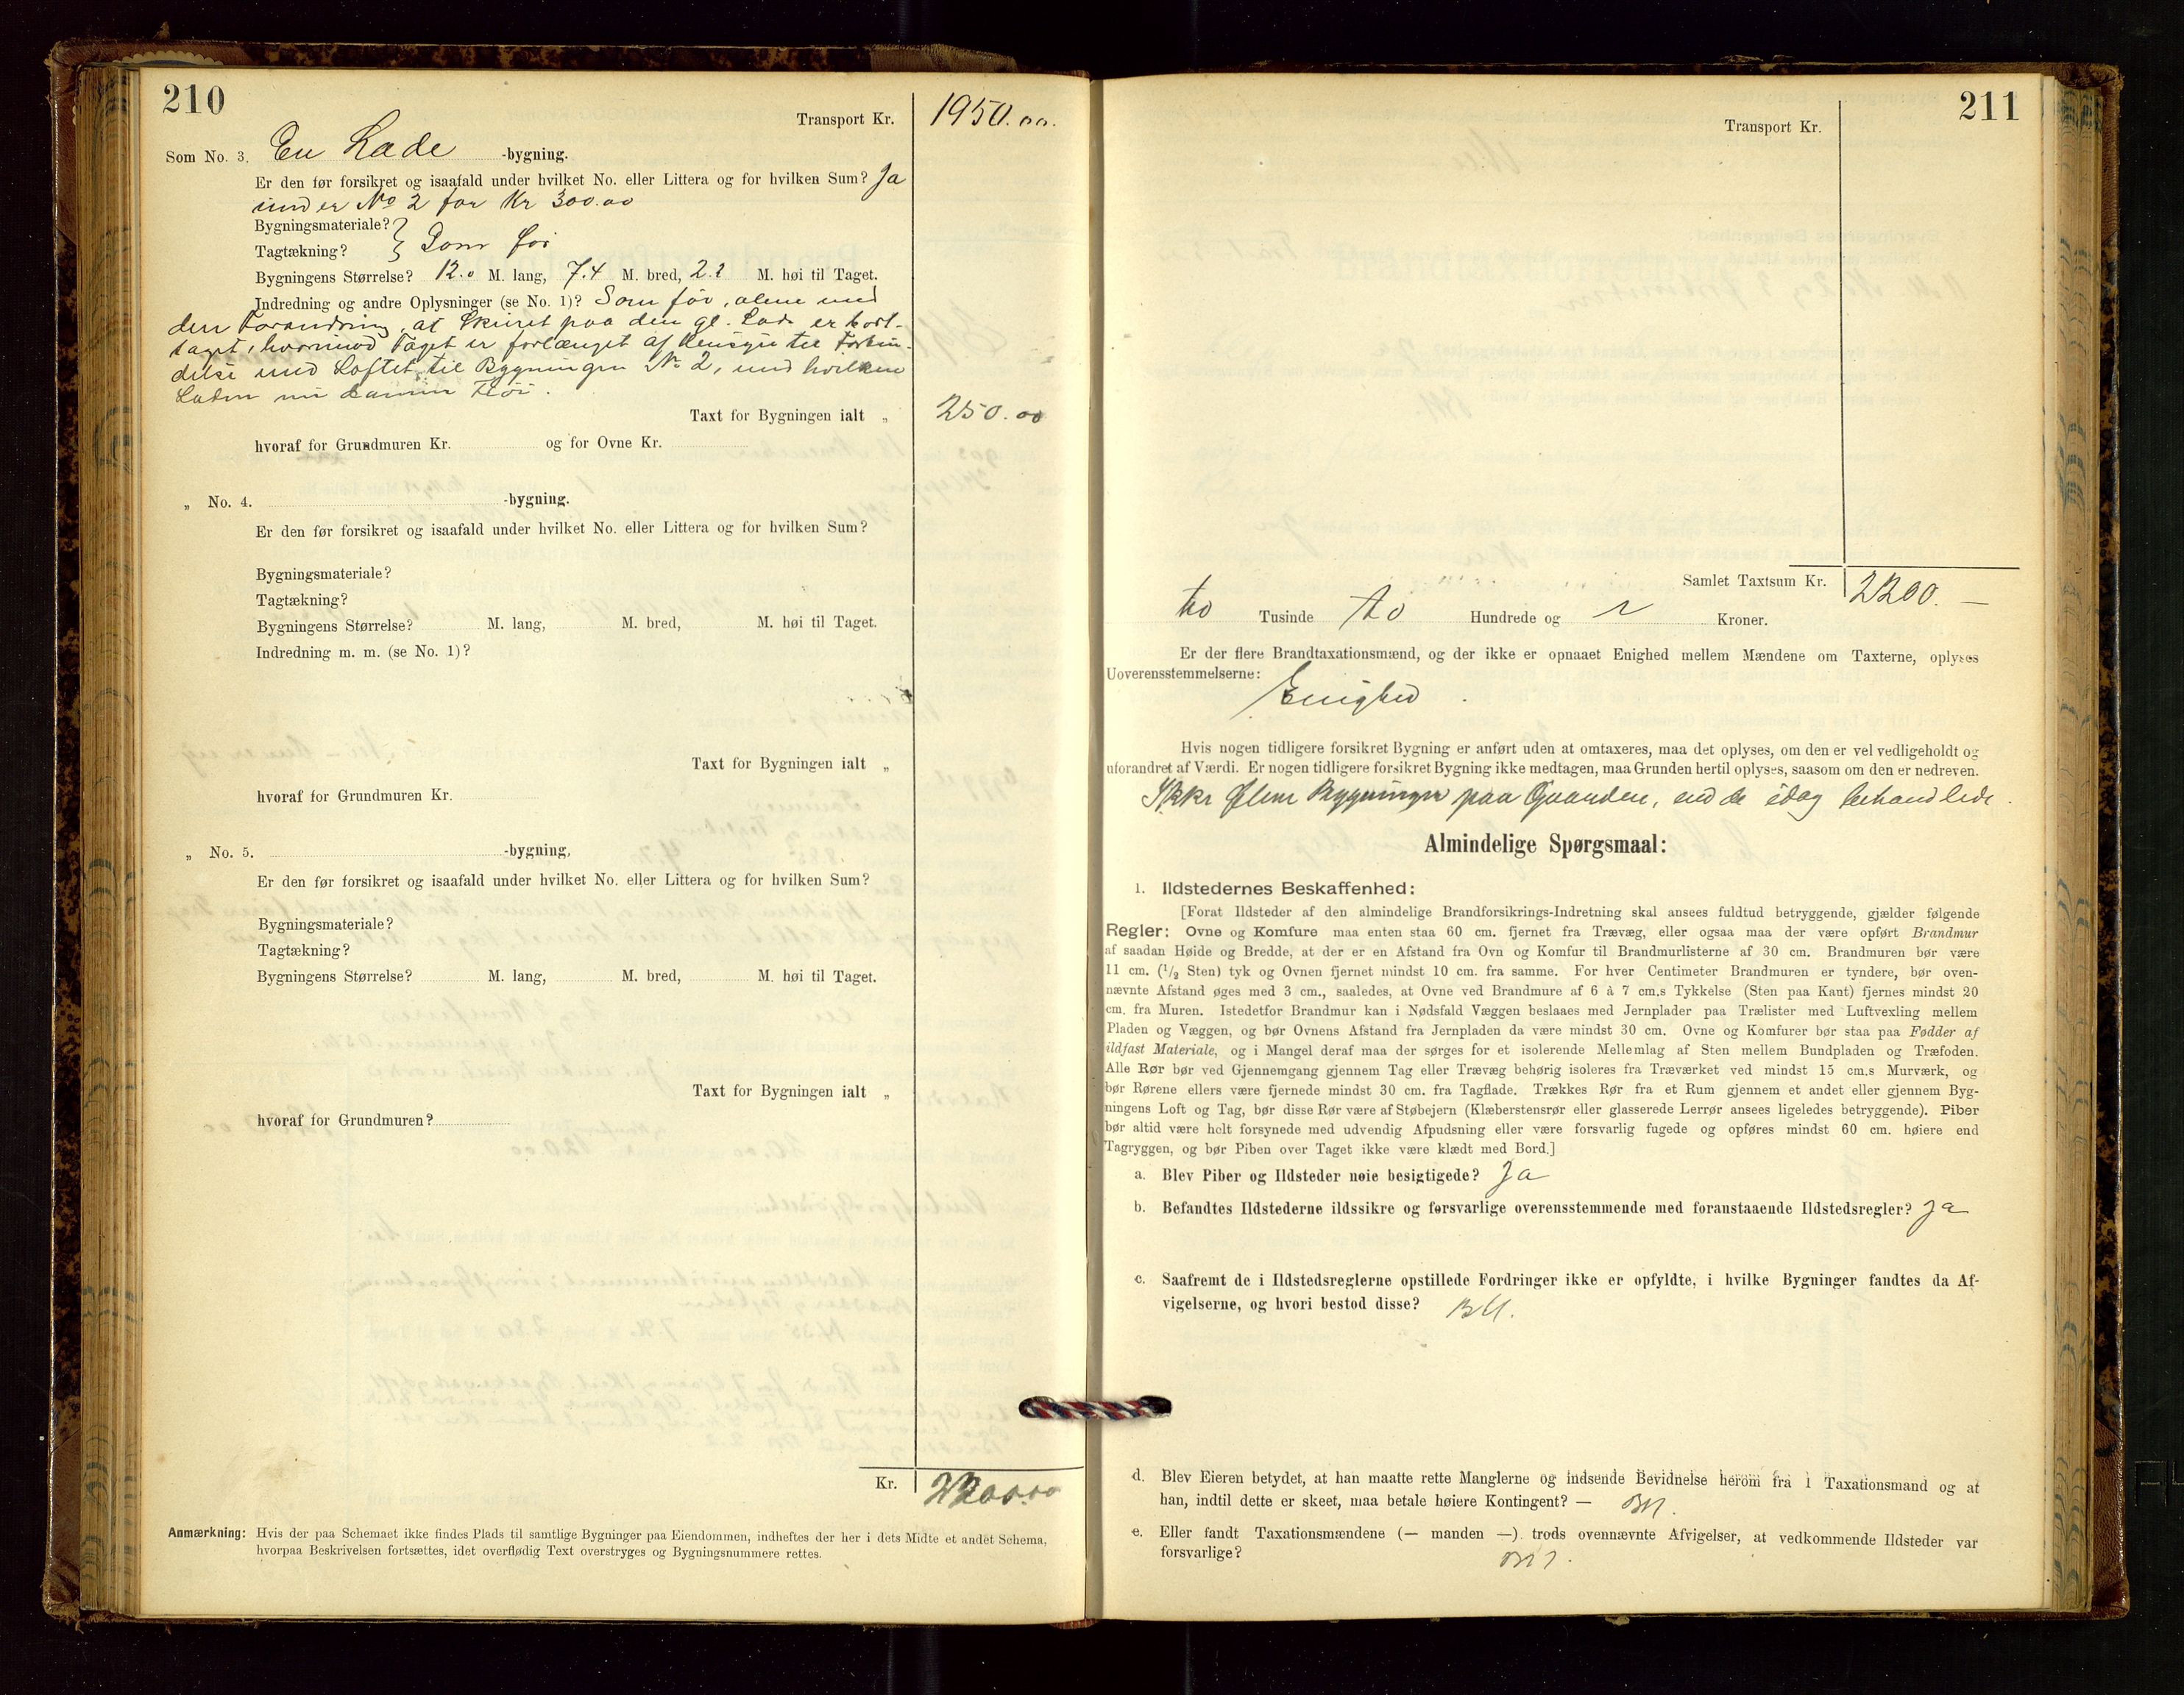 210
Transport Kr. 1950.00.
Som No. 3. En Lade -bygning.
Er den før forsikret og isaafald under hvilket No. eller Littera og for hvilken Sum? Ja
under No 2 for Kr 300.00
Bygningsmateriale? }
Tagtækning? } Som før
Bygningens Størrelse? 12.0 M. lang, 7.4 M. bred, 2.2 M. høi til Taget.
Indredning og andre Oplysninger (se No. 1)? Som før, alene med
den Forandring, at Skuret paa den gl. Lade er bort-
taget, hvorimod Taget er forlænget af Hensyn til Forbin-
delse med Loftet til Bygningen No 2, med hvilken
Laden nu danner Fløi.
Taxt for Bygningen ialt „ 250.00
hvoraf for Grundmuren Kr. og for Ovne Kr.
„ No. 4. -bygning.
Er den før forsikret og isaafald under hvilket No. eller Littera og for hvilken Sum?
Bygningsmateriale?
Tagtækning?
Bygningens Størrelse? M. lang, M. bred, M. høi til Taget.
Indredning m. m. (se No. 1)?
Taxt for Bygningen ialt „
hvoraf for Grundmuren Kr.
„ No. 5. -bygning,
Er den før forsikret og isaafald under hvilket No. eller Littera og for hvilken Sum?
Bygningsmateriale?
Tagtækning?
Bygningens Størrelse? M. lang, M. bred, M. høi til Taget.
Taxt for Bygningen ialt „
hvoraf for Grundmuren?
Kr. 2200.00
Anmærkning: Hvis der paa Schemaet ikke findes Plads til samtlige Bygninger paa Eiendommen, indheftes der her i dets Midte et andet Schema,
hvorpaa Beskrivelsen fortsættes, idet overflødig Text overstryges og Bygningsnummere rettes.
211
Transport Kr.
Samlet Taxtsum Kr. 2200. —
to Tusinde to Hundrede og Kroner.
Er der flere Brandtaxationsmænd, og der ikke er opnaaet Enighed mellem Mændene om Taxterne, oplyses
Uoverensstemmelserne:
Enighed.
Hvis nogen tidligere forsikret Bygning er anført uden at omtaxeres, maa det oplyses, om den er vel vedligeholdt og
uforandret af Værdi. Er nogen tidligere forsikret Bygning ikke medtagen, maa Grunden hertil oplyses, saasom om den er nedreven.
Ikke flere Bygninger paa Gaarden, end de idag behandlede.
Almindelige Spørgsmaal:
1. Ildstedernes Beskaffenhed:
[Forat Ildsteder af den almindelige Brandforsikrings-Indretning skal ansees fuldtud betryggende, gjælder følgende
Regler: Ovne og Komfure maa enten staa 60 cm. fjernet fra Trævæg, eller ogsaa maa der være opført Brandmur
af saadan Høide og Bredde, at der er en Afstand fra Ovn og Komfur til Brandmurlisterne af 30 cm. Brandmuren bør være
11 cm. (1/2 Sten) tyk og Ovnen fjernet mindst 10 cm. fra samme. For hver Centimeter Brandmuren er tyndere, bør oven-
nævnte Afstand øges med 3 cm., saaledes, at Ovne ved Brandmure af 6 à 7 cm.s Tykkelse (Sten paa Kant) fjernes mindst 20
cm. fra Muren. Istedetfor Brandmur kan i Nødsfald Væggen beslaaes med Jernplader paa Trælister med Luftvexling mellem
Pladen og Væggen, og bør Ovnens Afstand fra Jernpladen da være mindst 30 cm. Ovne og Komfurer bør staa paa Fødder af
ildfast Materiale, og i Mangel deraf maa der sørges for et isolerende Mellemlag af Sten mellem Bundpladen og Træfoden.
Alle Rør bør ved Gjennemgang gjennem Tag eller Trævæg behørig isoleres fra Træværket ved mindst 15 cm.s Murværk, og
bør Rørene ellers være fjernede mindst 30 cm. fra Tagflade. Trækkes Rør fra et Rum gjennem et andet eller gjennem Byg-
ningens Loft og Tag, bør disse Rør være af Støbejern (Klæberstensrør eller glasserede Lerrør ansees ligeledes betryggende). Piber
bør altid være helt forsynede med udvendig Afpudsning eller være forsvarlig fugede og opføres mindst 60 cm. høiere end
Tagryggen, og bør Piben over Taget ikke være klædt med Bord.]
a. Blev Piber og Ildsteder nøie besigtigede? Ja
b. Befandtes Ildstederne ildssikre og forsvarlige overensstemmende med foranstaaende Ildstedsregler? Ja
c. Saafremt de i Ildstedsreglerne opstillede Fordringer ikke er opfyldte, i hvilke Bygninger fandtes da Af-
vigelserne, og hvori bestod disse?
d. Blev Eieren betydet, at han maatte rette Manglerne og indsende Bevidnelse herom fra 1 Taxationsmand og at
han, indtil dette er skeet, maa betale høiere Kontingent? —
e. Eller fandt Taxationsmændene (— manden —) trods ovennævnte Afvigelser, at vedkommende Ildsteder var
forsvarlige?